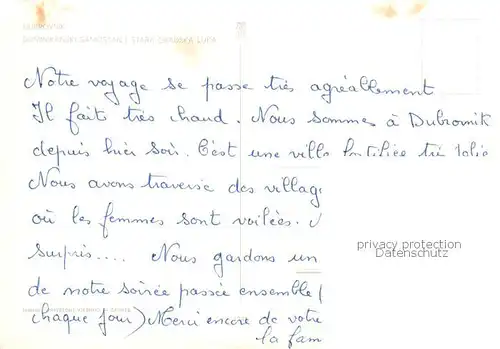 DUBROVNIK
DOMINIKANSKI SAMOSTAN I STARA GRADSKA LUKA
Notre voyage se passe très agréablement
Il fait très chaud. Nous sommes à Dubrovnik
depuis hier soir. C'est une ville fortifiée très jolie
Nous avons traversé des villag
où les femmes sont voilées.
surpris.... Nous gardons un
privacy protection
Datenschutz
de notre soirée passée ensemble (
chaque jour) Merci encore de votre
la fam